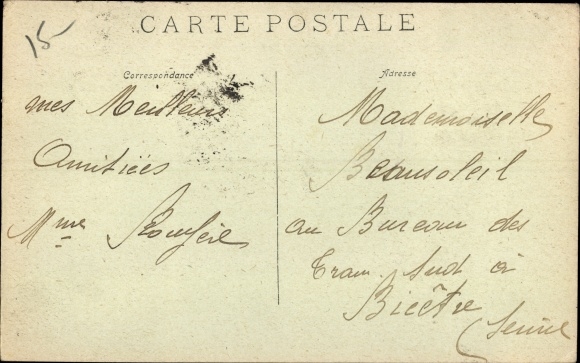 15
CARTE POSTALE
Correspondance
mes Meilleurs
Amitiées
Mme
Adresse
Mademoiselle
Beausoleil
au Bureau des
Tram. Sud à
Bicêtre
(Seine